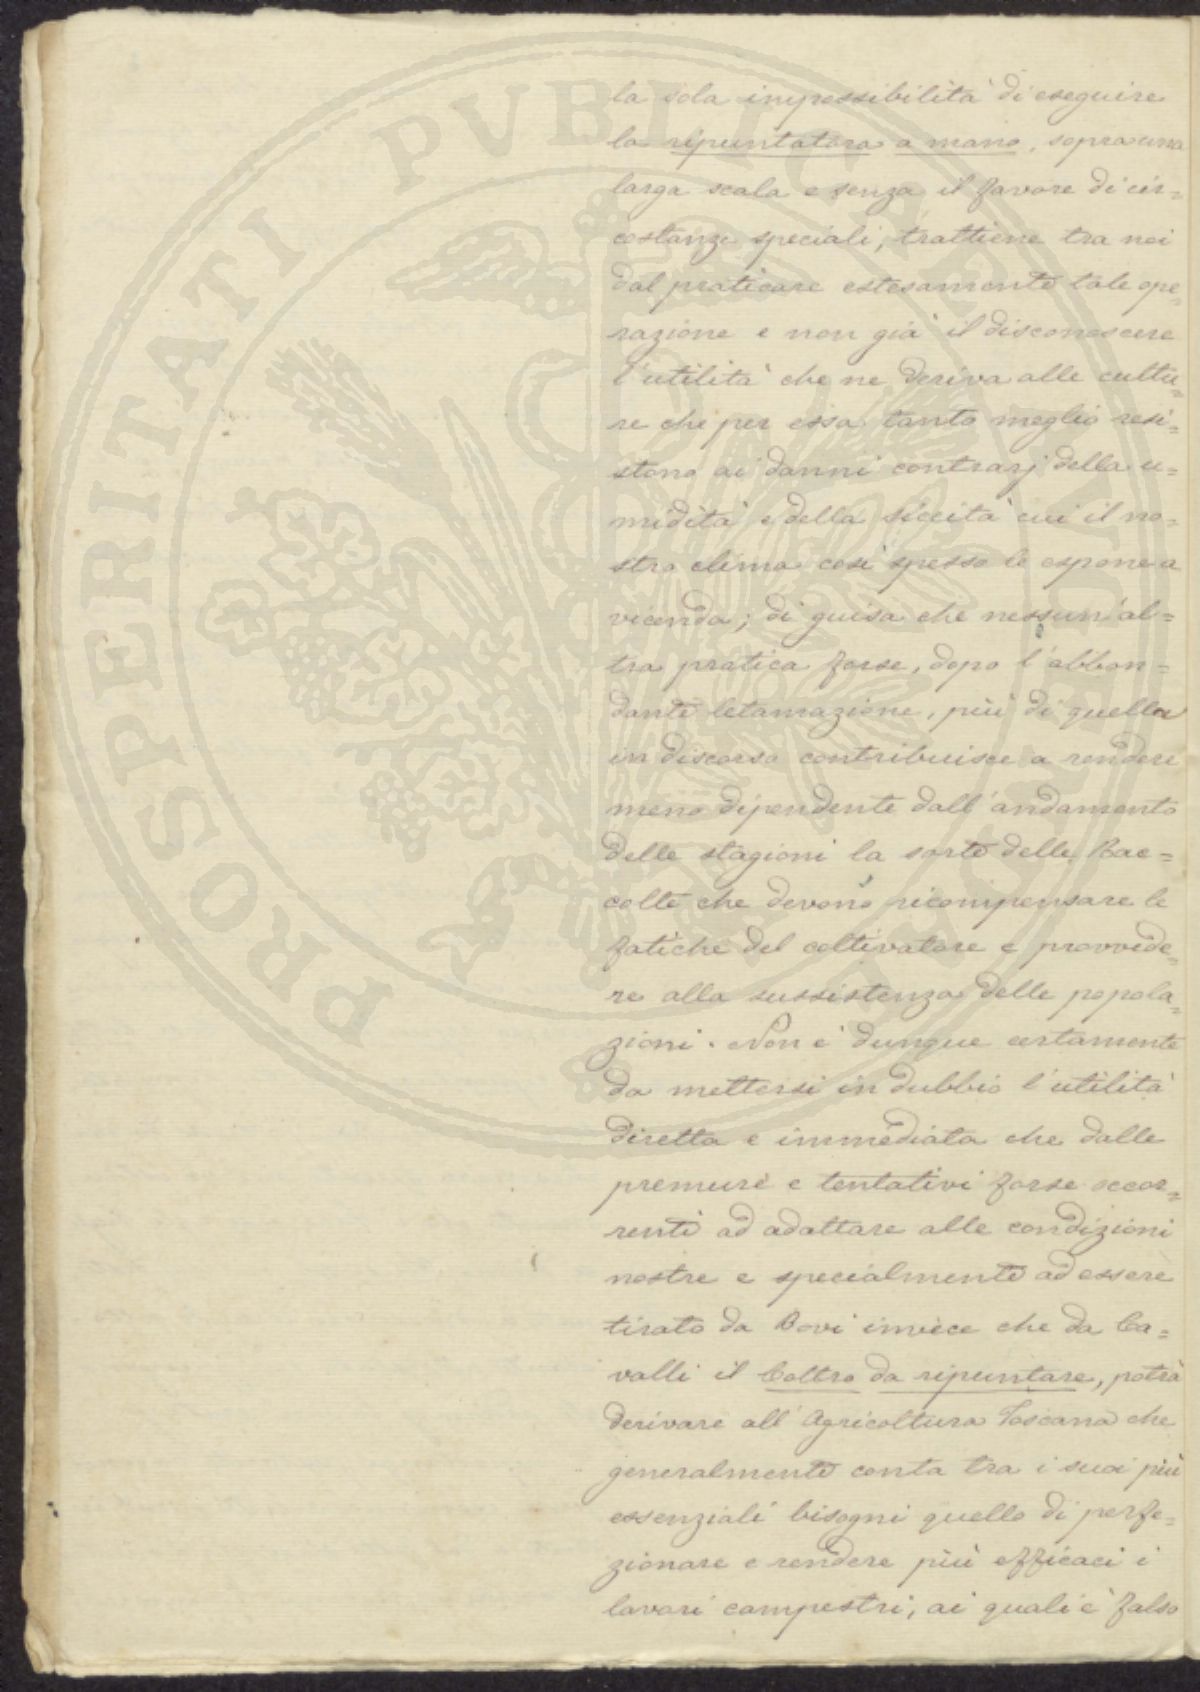 la sola impossibilità di eseguire
la ripuntatura a mano, sopra una
larga scala e senza il favore di cir=
costanze speciali, trattiene tra noi
dal praticare estesamente tale ope=
razione e non già il disconoscere
l'utilità che ne deriva alle cultu=
re che per essa tanto meglio resi=
stono ai danni contrarj della u=
midità e della siccità cui il no=
stro clima così spesso le espone a
vicenda; di guisa che nessun'al=
tra pratica forse, dopo l'abbon=
dante letamazione, più di quella
in discorso contribuisce a rendere
meno dipendente dall'andamento
delle stagioni la sorte delle Rac=
colte che devono ricompensare le
fatiche del coltivatore e provvede=
re alla sussistenza delle popola=
zioni. Non è dunque certamente
da mettersi in dubbio l'utilità
diretta e immediata che dalle
premure e tentativi forse occor=
renti ad adattare alle condizioni
nostre e specialmente ad essere
tirato da Bovi invece che da Ca=
valli il Coltro da ripuntare, potrà
derivare all'Agricoltura Toscana che
generalmente conta tra i suoi più
essenziali bisogni quello di perfe=
zionare e rendere più efficaci i
lavori campestri; ai quali è falso
PROSPERITATI PUBLICAE AUGENDAE